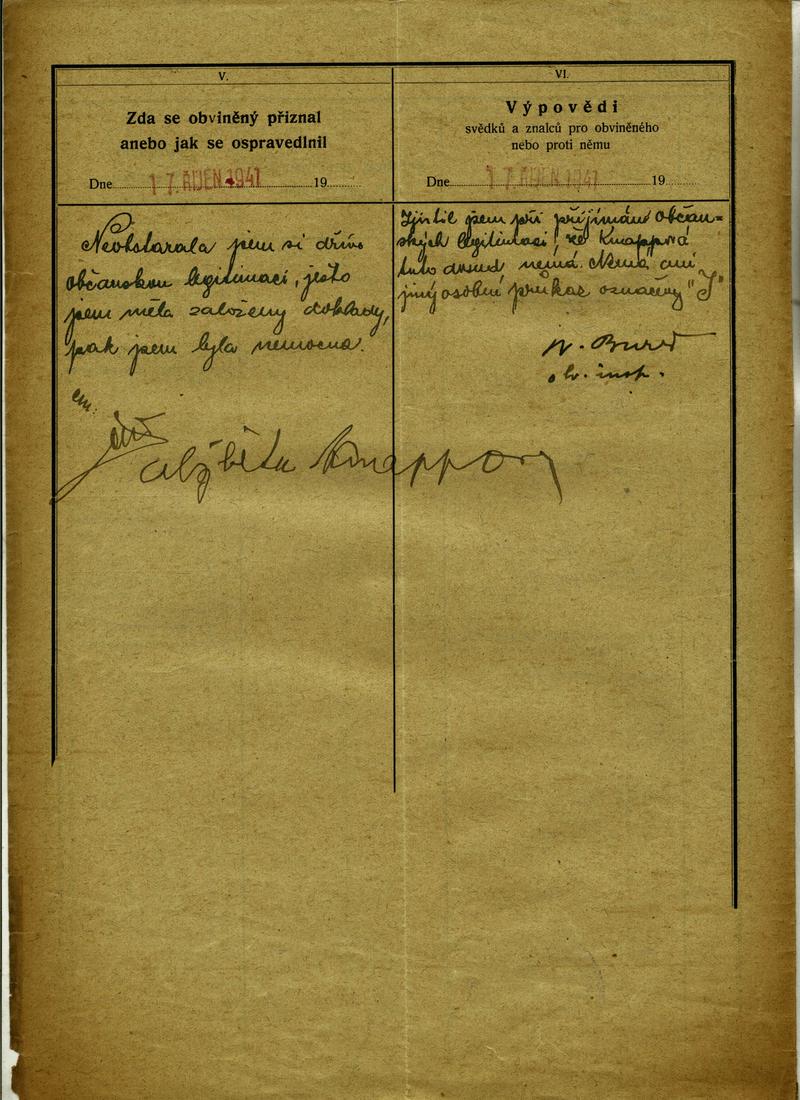 V.
Zda se obviněný přiznal
anebo jak se ospravedlnil
Dne 17. ŘÍJEN 1941 19
Neobstarala jsem si dříve
občanskou legitimaci, ježto
jsem měla založeny doklady,
pak jsem byla nemocna.
Alžběta Knappov
VI.
Výpovědi
svědků a znalců pro obviněného
nebo proti němu
Dne 17. ŘÍJEN 1941 19
Zjistil jsem při přijímání občan-
ských legitimací, že Knappová
tuto dosud nemá. Nemá, ani
jiný osobní průkaz označený "J"